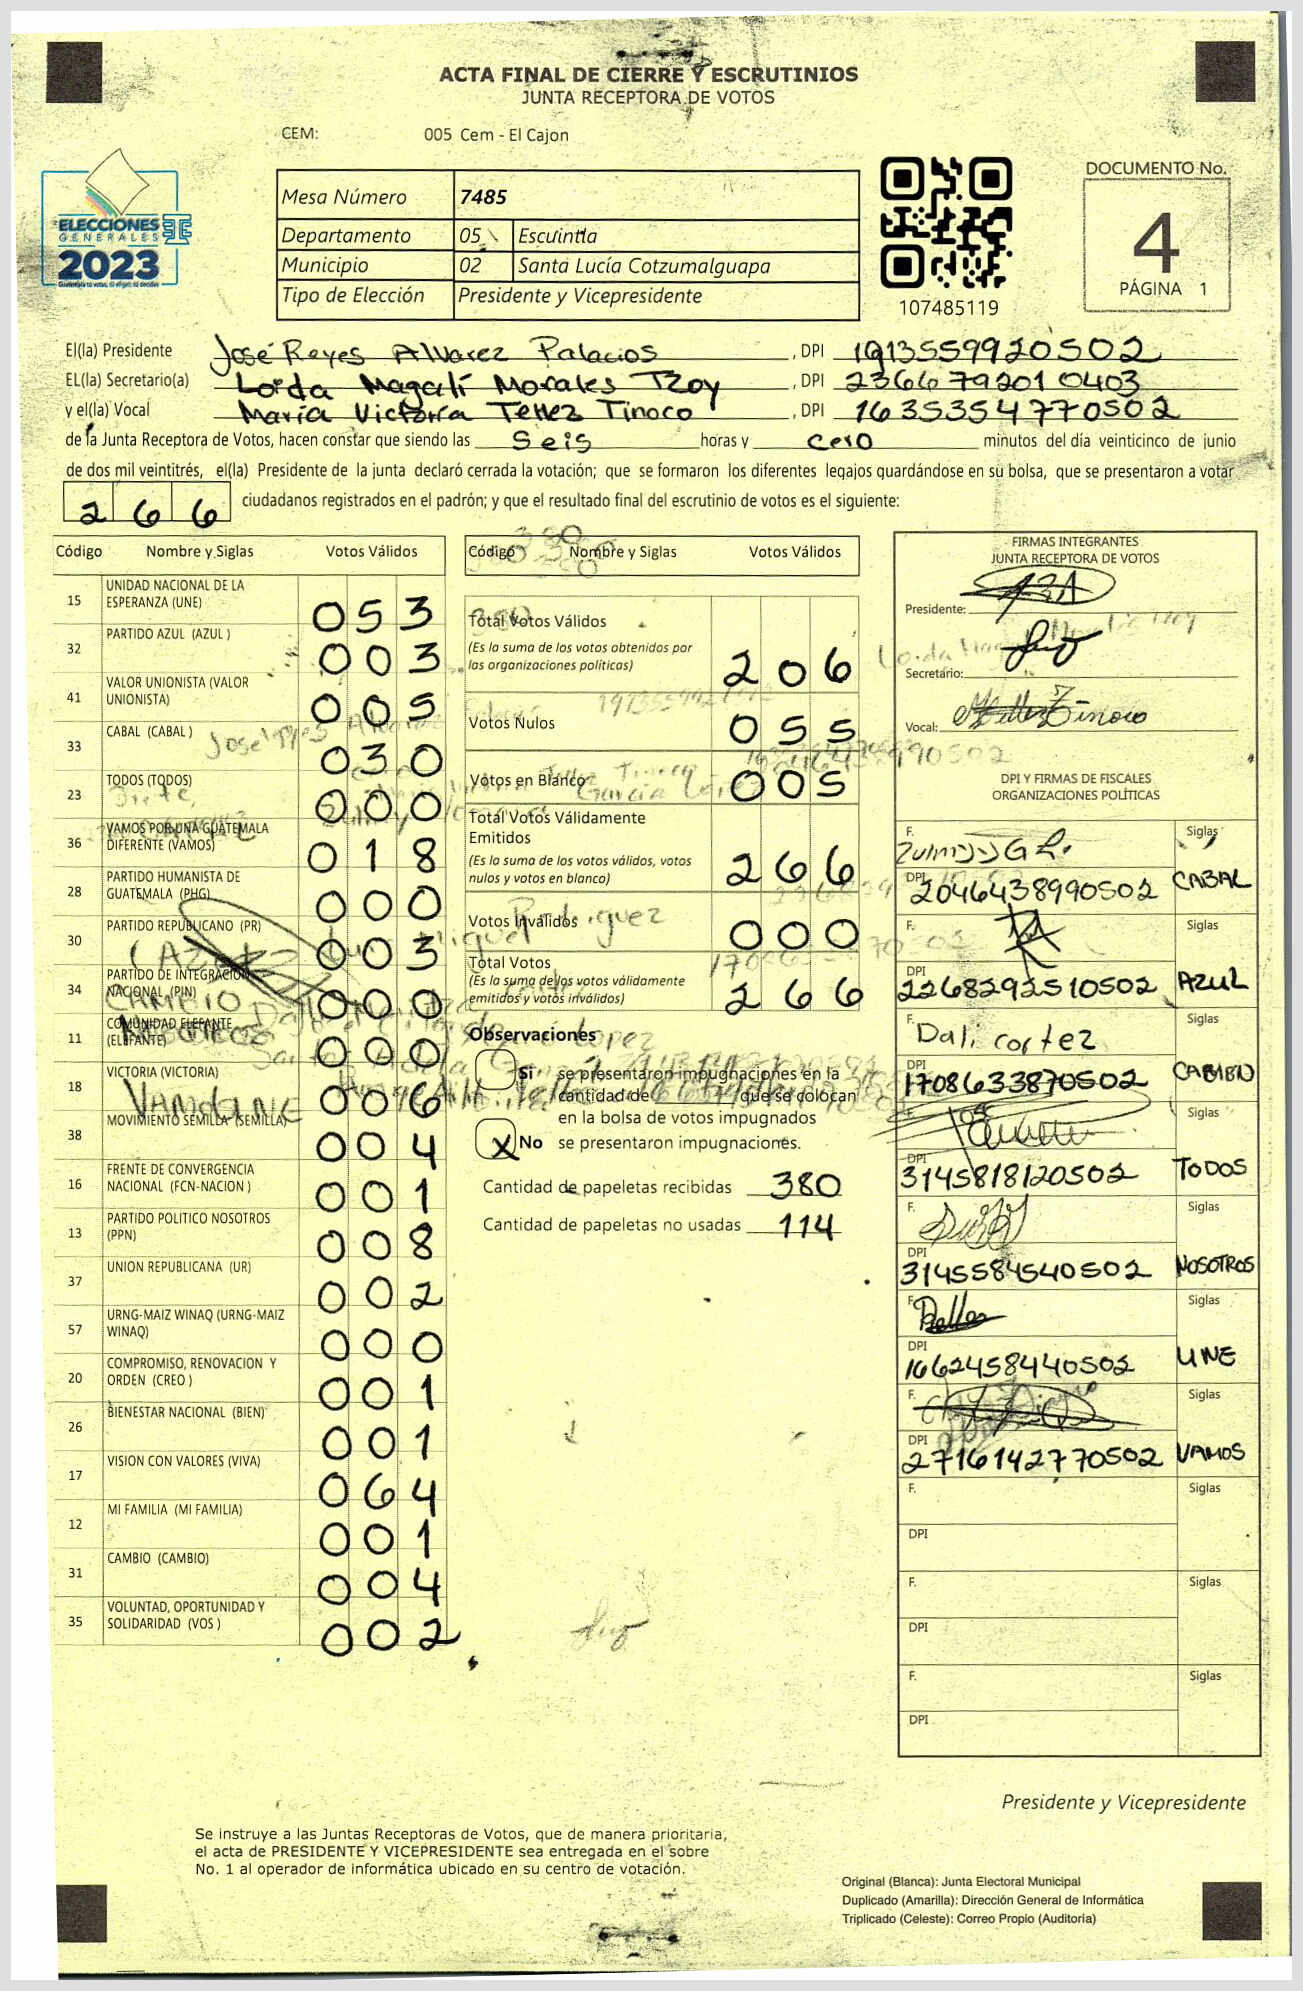 ACTA FINAL DE CIERRE Y ESCRUTINIOS
JUNTA RECEPTORA DE VOTOS
CEM: 005 Cem - El Cajon
ELECCIONES
GENERALES
2023
Mesa Número 7485
Departamento 05 Escuintla
Municipio 02 Santa Lucía Cotzumalguapa
Tipo de Elección Presidente y Vicepresidente
107485119
DOCUMENTO No.
4
PÁGINA 1
El(la) Presidente José Reyes Alvarez Palacios , DPI 1913559920502
EL(la) Secretario(a) Loida Magalí Morales Tzoy , DPI 2366792010403
y el(la) Vocal María Victoria Tellez Tinoco , DPI 1635354770502
de la Junta Receptora de Votos, hacen constar que siendo las seis horas y cero minutos del día veinticinco de junio
de dos mil veintitrés, el(la) Presidente de la junta declaró cerrada la votación; que se formaron los diferentes legajos guardándose en su bolsa, que se presentaron a votar
266 ciudadanos registrados en el padrón; y que el resultado final del escrutinio de votos es el siguiente:
Código Nombre y Siglas Votos Válidos
15 UNIDAD NACIONAL DE LA ESPERANZA (UNE) 053
32 PARTIDO AZUL (AZUL ) 003
41 VALOR UNIONISTA (VALOR UNIONISTA) 005
33 CABAL (CABAL ) 030
23 TODOS (TODOS) 000
36 VAMOS POR UNA GUATEMALA DIFERENTE (VAMOS) 018
28 PARTIDO HUMANISTA DE GUATEMALA (PHG) 000
30 PARTIDO REPUBLICANO (PR) 003
34 PARTIDO DE INTEGRACIÓN NACIONAL (PIN) 000
11 COMUNIDAD ELEFANTE (ELEFANTE) 000
18 VICTORIA (VICTORIA) 006
38 MOVIMIENTO SEMILLA (SEMILLA) 004
16 FRENTE DE CONVERGENCIA NACIONAL (FCN-NACION ) 001
13 PARTIDO POLITICO NOSOTROS (PPN) 008
37 UNION REPUBLICANA (UR) 002
57 URNG-MAIZ WINAQ (URNG-MAIZ WINAQ) 000
20 COMPROMISO, RENOVACION Y ORDEN (CREO ) 001
26 BIENESTAR NACIONAL (BIEN) 001
17 VISION CON VALORES (VIVA) 064
12 MI FAMILIA (MI FAMILIA) 001
31 CAMBIO (CAMBIO) 004
35 VOLUNTAD, OPORTUNIDAD Y SOLIDARIDAD (VOS ) 002
Código Nombre y Siglas Votos Válidos
Total Votos Válidos 206
(Es la suma de los votos obtenidos por
las organizaciones políticas)
Votos Nulos 055
Votos en Blanco 005
Total Votos Válidamente
Emitidos 266
(Es la suma de los votos válidos, votos
nulos y votos en blanco)
Votos Inválidos 000
Total Votos 266
(Es la suma de los votos válidamente
emitidos y votos inválidos)
Observaciones
Si se presentaron impugnaciones en la
cantidad de que se colocan
en la bolsa de votos impugnados
X No se presentaron impugnaciones.
Cantidad de papeletas recibidas 380
Cantidad de papeletas no usadas 114
FIRMAS INTEGRANTES
JUNTA RECEPTORA DE VOTOS
Presidente:
Secretario:
Vocal:
DPI Y FIRMAS DE FISCALES
ORGANIZACIONES POLÍTICAS
F. Siglas
DPI 2046438990502 CABAL
F. Siglas
DPI 2268292510502 AZUL
F. Dali cortez Siglas
DPI 1708633870502 CAMBIO
F. Siglas
DPI 3145818120502 TODOS
F. Siglas
DPI 3145584540502 NOSOTROS
F. Siglas
DPI 1662458440502 UNE
F. Siglas
DPI 2716142770502 VAMOS
F. Siglas
DPI
F. Siglas
DPI
F. Siglas
DPI
Presidente y Vicepresidente
Se instruye a las Juntas Receptoras de Votos, que de manera prioritaria,
el acta de PRESIDENTE Y VICEPRESIDENTE sea entregada en el sobre
No. 1 al operador de informática ubicado en su centro de votación.
Original (Blanca): Junta Electoral Municipal
Duplicado (Amarilla): Dirección General de Informática
Triplicado (Celeste): Correo Propio (Auditoría)